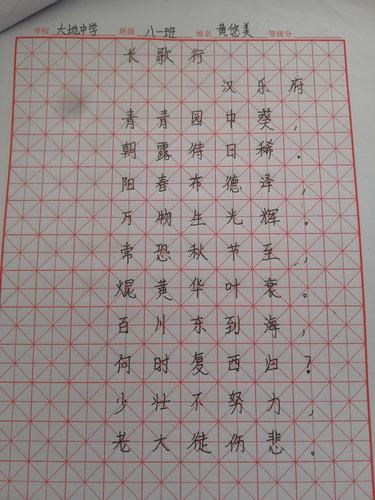 学校 大地中学 班级 八一班 姓名 黄悠美 等级分
长歌行
汉乐府
青青园中葵，
朝露待日稀。
阳春布德泽，
万物生光辉。
常恐秋节至，
焜黄华叶衰。
百川东到海，
何时复西归？
少壮不努力，
老大徒伤悲。